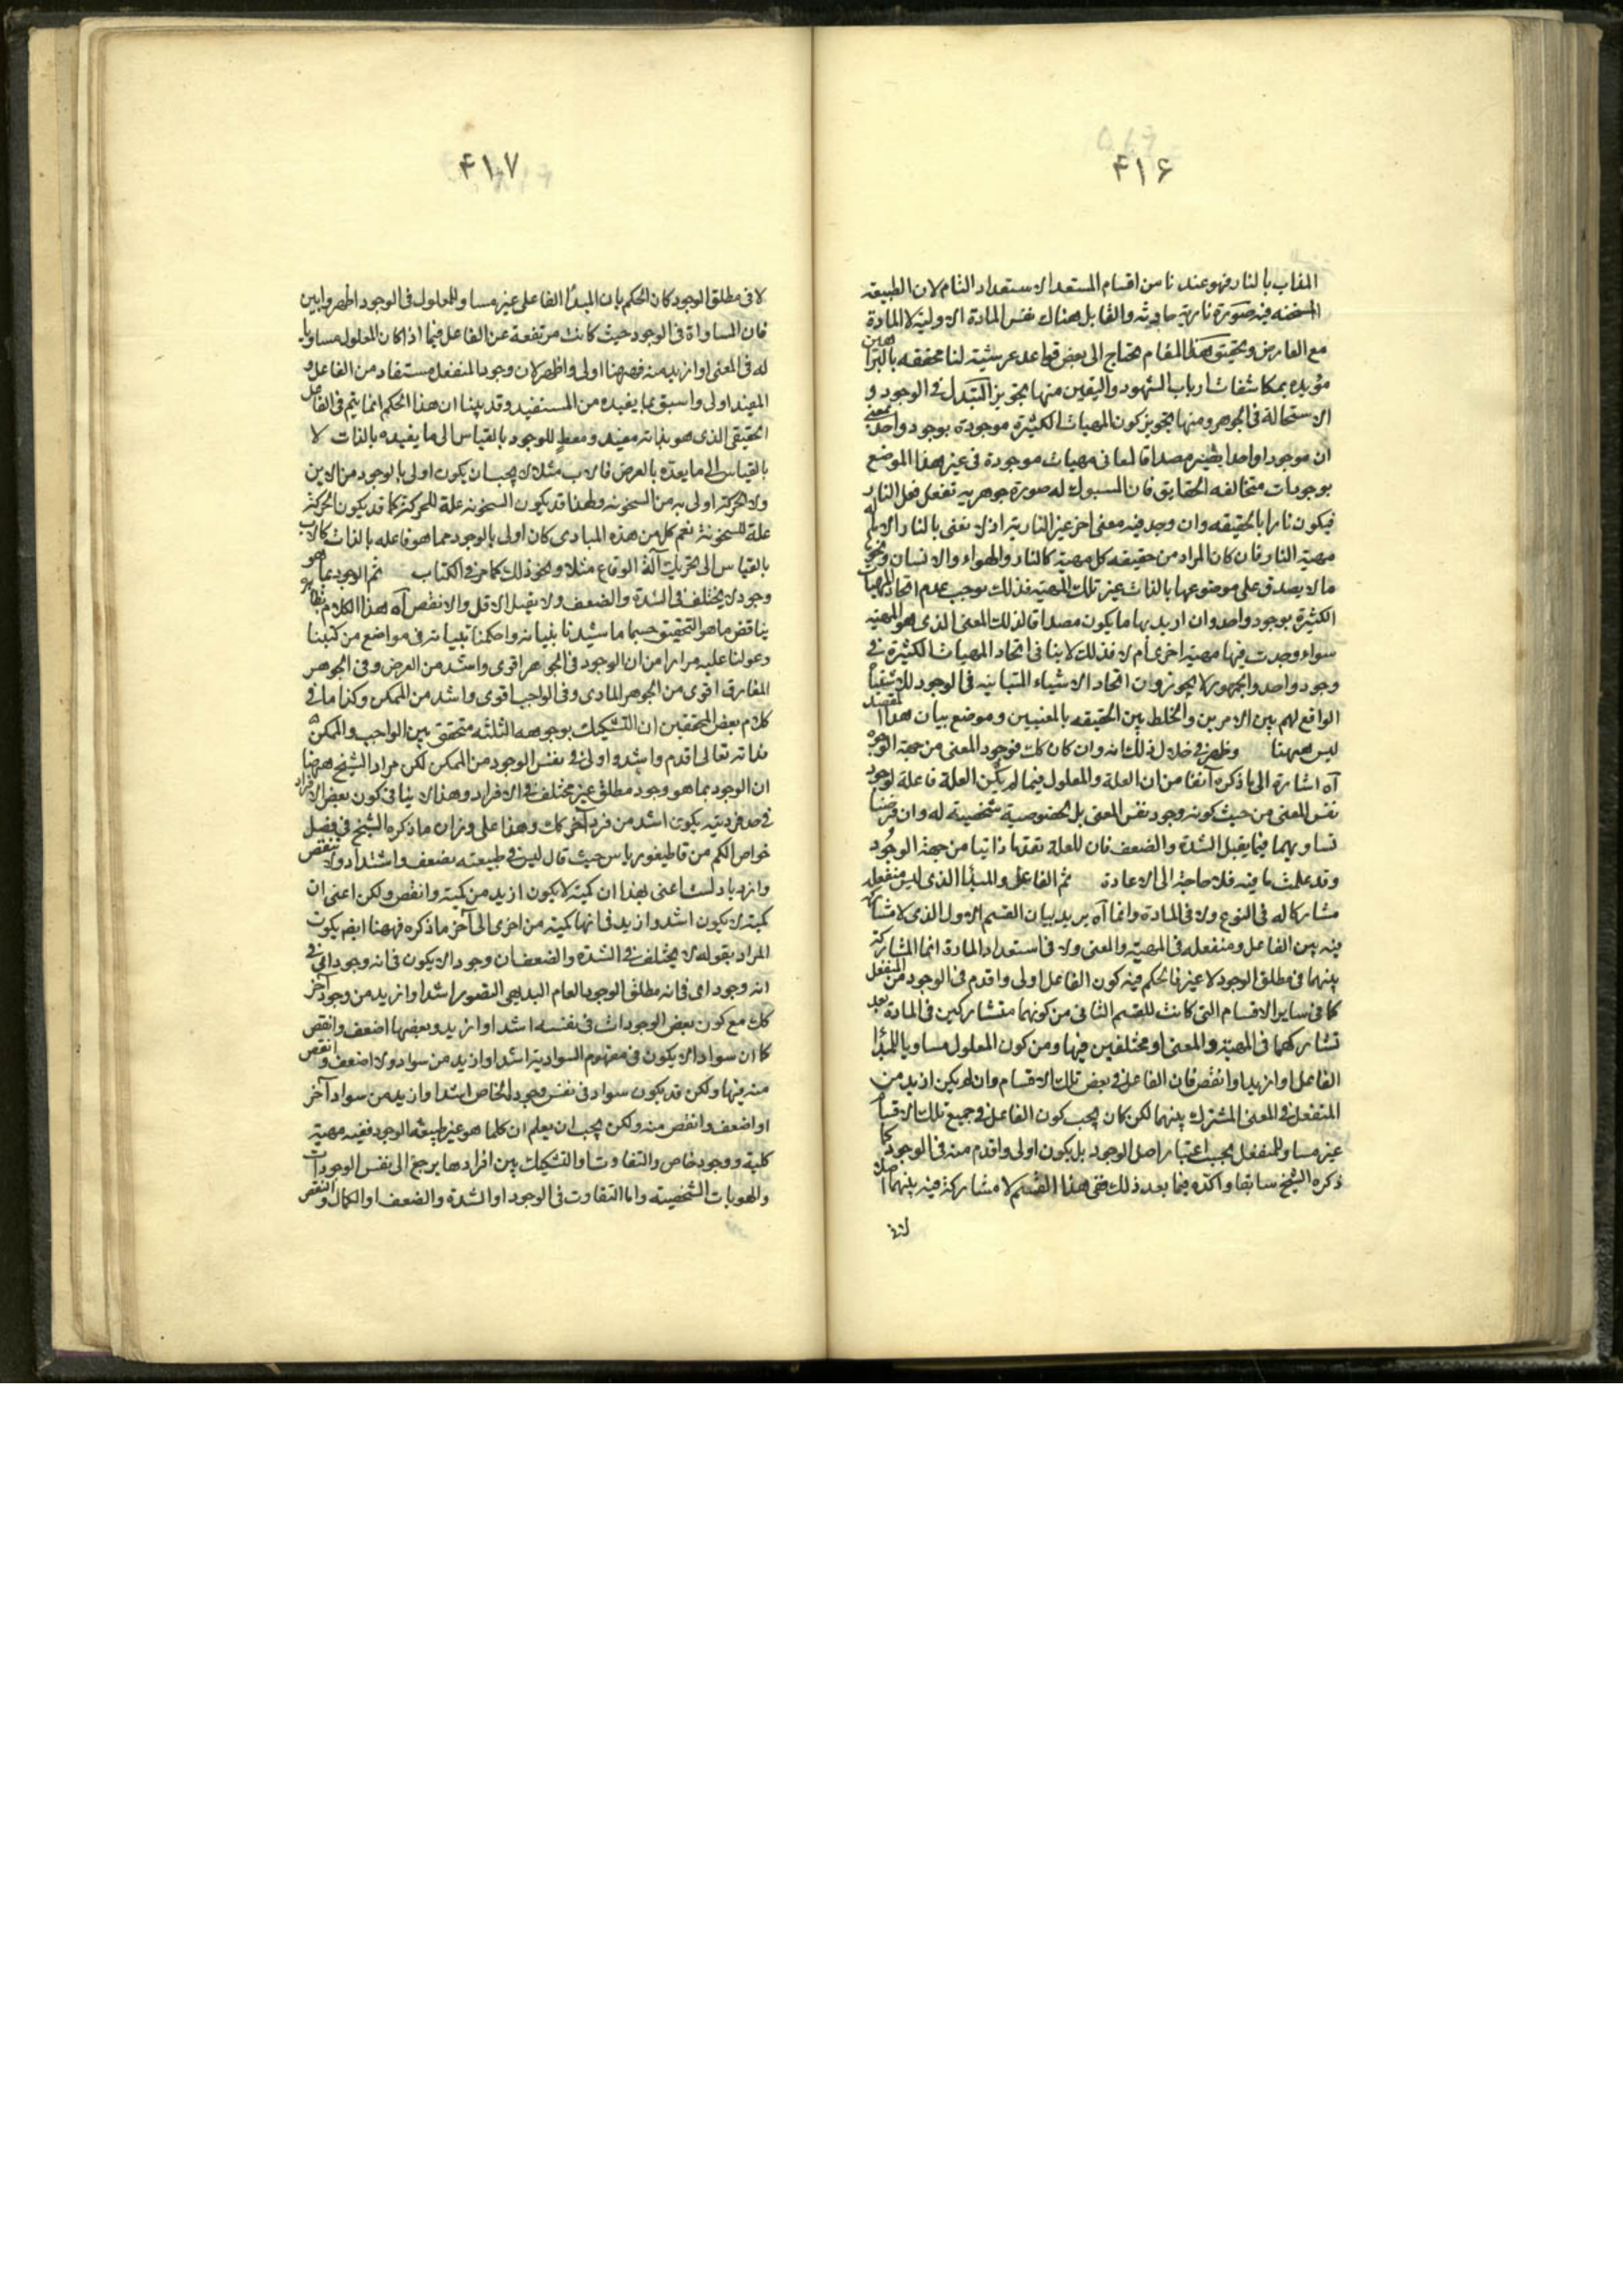 ۴۱۶
المذاب بالنار فهو عندنا من اقسام المستعد الاستعداد التام لان الطبيعة
المسخنة فيه صورة نارية حادثه والقابل هناك نفس المادة الاولية لا المادة
مع العارض وتحقيق هذا المقام يحتاج الى بعض قواعد عرشية لنا محققه بالبراهين
مؤيده بمكاشفات ارباب الشهود واليقين منها تجويز التبدل في الوجود و
الاستحالة في الجوهر ومنها تجويز كون المهيات الكثيرة موجودة بوجود واحد بمعنى
ان موجودا واحدا يصير مصداقا لمعانى مهيات موجودة في غير هذا الموضع
بوجودات متخالفه الحقايق فان المسبوك له صورة جوهريه تفعل فعل النار
فيكون نارا بالحقيقه وان وجد فيه معنى اخر غير النارية اذ لا نعنى بالنار الا ما له
مهية النار فان كان المراد من حقيقه كل مهية كالنار والهواء والانسان ونحوها
ما لا يصدق على موضوعها بالذات غير تلك المهية فذلك يوجب عدم اتحاد المهيات
الكثيرة بوجود واحد وان اريد بها ما يكون مصداقا لذلك المعنى الذى هو المهية
سواء وجدت فيها مهية اخرى ام لا فذلك لا ينافى اتحاد المهيات الكثيرة في
وجود واحد والجمهور لا يجوزون اتحاد الاشياء المتباينه في الوجود للاشتباه
الواقع لهم بين الامرين والخلط بين الحقيقه بالمعنيين وموضع بيان هذا المقصد
ليس ههنا وظهر في خلال ذلك انه وان كان كك فوجود المعنى من جهة الوجود
آه اشارة الى ما ذكره آنفا من ان العلة والمعلول فيما لم يكن العلة فاعلة لوجود
نفس المعنى من حيث كونه وجود نفس المعنى بل لخصوصية شخصية له وان فرضنا
تساويهما فيما يقبل الشدة والضعف فان للعلة تقدما ذاتيا من جهة الوجود
وقد علمت ما فيه فلا حاجة الى الاعادة ثم الفاعل والمبدأ الذى ليس منفعله
مشاركا له في النوع ولا في المادة وانما آه يريد بيان القسم الاول الذى لا مشاركة
فيه بين الفاعل ومنفعله في المهية والمعنى ولا في استعداد المادة انما المشاركة
بينهما في مطلق الوجود لا غير فالحكم فيه كون الفاعل اولى واقدم في الوجود من المنفعل
كما في ساير الاقسام التى كانت للقسم الثانى من كونهما متشاركين في المادة بعد
تشاركهما في المهية والمعنى او مختلفين فيها ومن كون المعلول مساويا للمبدأ
الفاعل او ازيد او انقص فان الفاعل في بعض تلك الاقسام وان لم يكن ازيد من
المنفعل في المعنى المشترك بينهما لكن كان يجب كون الفاعل في جميع تلك الاقسام
غير مساو للمنفعل بحسب اعتبار اصل الوجود بل يكون اولى واقدم منه في الوجود كما
ذكره الشيخ سابقا واكده فيما بعد ذلك ففى هذا القسم لا مشاركة فيه بينهما اصلا
۴۱۷
لا في مطلق الوجود كان الحكم بان المبدأ الفاعلى غير مساو للمعلول في الوجود اظهر وابين
فان المساواة في الوجود حيث كانت مرتفعة عن الفاعل فيما اذا كان المعلول مساويا
له في المعنى او ازيد منه فههنا اولى واظهر لان وجود المنفعل مستفاد من الفاعل و
المفيد اولى واسبق بما يفيده من المستفيد وقد بينا ان هذا الحكم انما يتم في الفاعل
الحقيقى الذى هو بذاته مفيد ومعط للوجود بالقياس الى ما يفيده بالذات لا
بالقياس الى ما يعده بالعرض فالاب مثلا لا يجب ان يكون اولى بالوجود من الابن
ولا الحركة اولى به من السخونه ولهذا قد يكون السخونه علة للحركة كما قد يكون الحركة
علة للسخونة نعم كل من هذه المبادى كان اولى بالوجود مما هو فاعله بالذات كالاب
بالقياس الى تحريك آلة الوقاع مثلا ونحو ذلك كما مر في الكتاب ثم الوجود بما هو
وجود لا يختلف في الشدة والضعف ولا يقبل الاقل والانقص آه هذا الكلام بظاهره
يناقض ما هو التحقيق حسبما ما شيدنا بنيانه واحكمنا تبيانه في مواضع من كتبنا
وعولنا عليه مرارا من ان الوجود في الجوهر اقوى واشد من العرض وفى الجوهر
المفارق اقوى من الجوهر المادى وفى الواجب اقوى واشد من الممكن وكذا ما في
كلام بعض المحققين ان التشكيك بوجوهه الثلثه متحقق بين الواجب والممكن
بذاته تعالى اقدم واشد واولى في نفس الوجود من الممكن لكن مراد الشيخ ههنا
ان الوجود بما هو وجود مطلق غير مختلف في الافراد وهذا لا ينافى كون بعض الافراد
في حد فرديته يكون اشد من فرد آخر كك وهذا على وزان ما ذكره الشيخ في فصل
خواص الكم من قاطيغورياس حيث قال ليس في طبيعته تضعف واشتداد ولا تنقص
وازدياد لست اعنى بهذا ان كمية لا يكون ازيد من كمية وانقص ولكن اعنى ان
كمية لا يكون اشد وازيد في انها كمية من اخرى الى آخر ما ذكره فههنا ايضم يكون
المراد بقوله لا يختلف في الشدة والضعف ان وجودا لا يكون في انه وجود اى في
انه وجود اى في انه مطلق الوجود العام البديهى التصور اشد او ازيد من وجود آخر
كك مع كون بعض الوجودات في نفسه اشد او ازيد وبعضها اضعف وانقص
كما ان سوادا لا يكون في مفهوم السوادية اشد او ازيد من سواد ولا اضعف وانقص
منه فيها ولكن قد يكون سواد في نفس وجوده الخاص اشد او ازيد من سواد آخر
او اضعف وانقص منه ولكن يجب ان يعلم ان كلما هو غير طبيعة الوجود ففيه مهية
كلية ووجود خاص والتفاوت او التشكيك بين افرادها يرجع الى نفس الوجودات
والهويات الشخصية واما التفاوت في الوجود او الشدة والضعف او الكمال والنقص